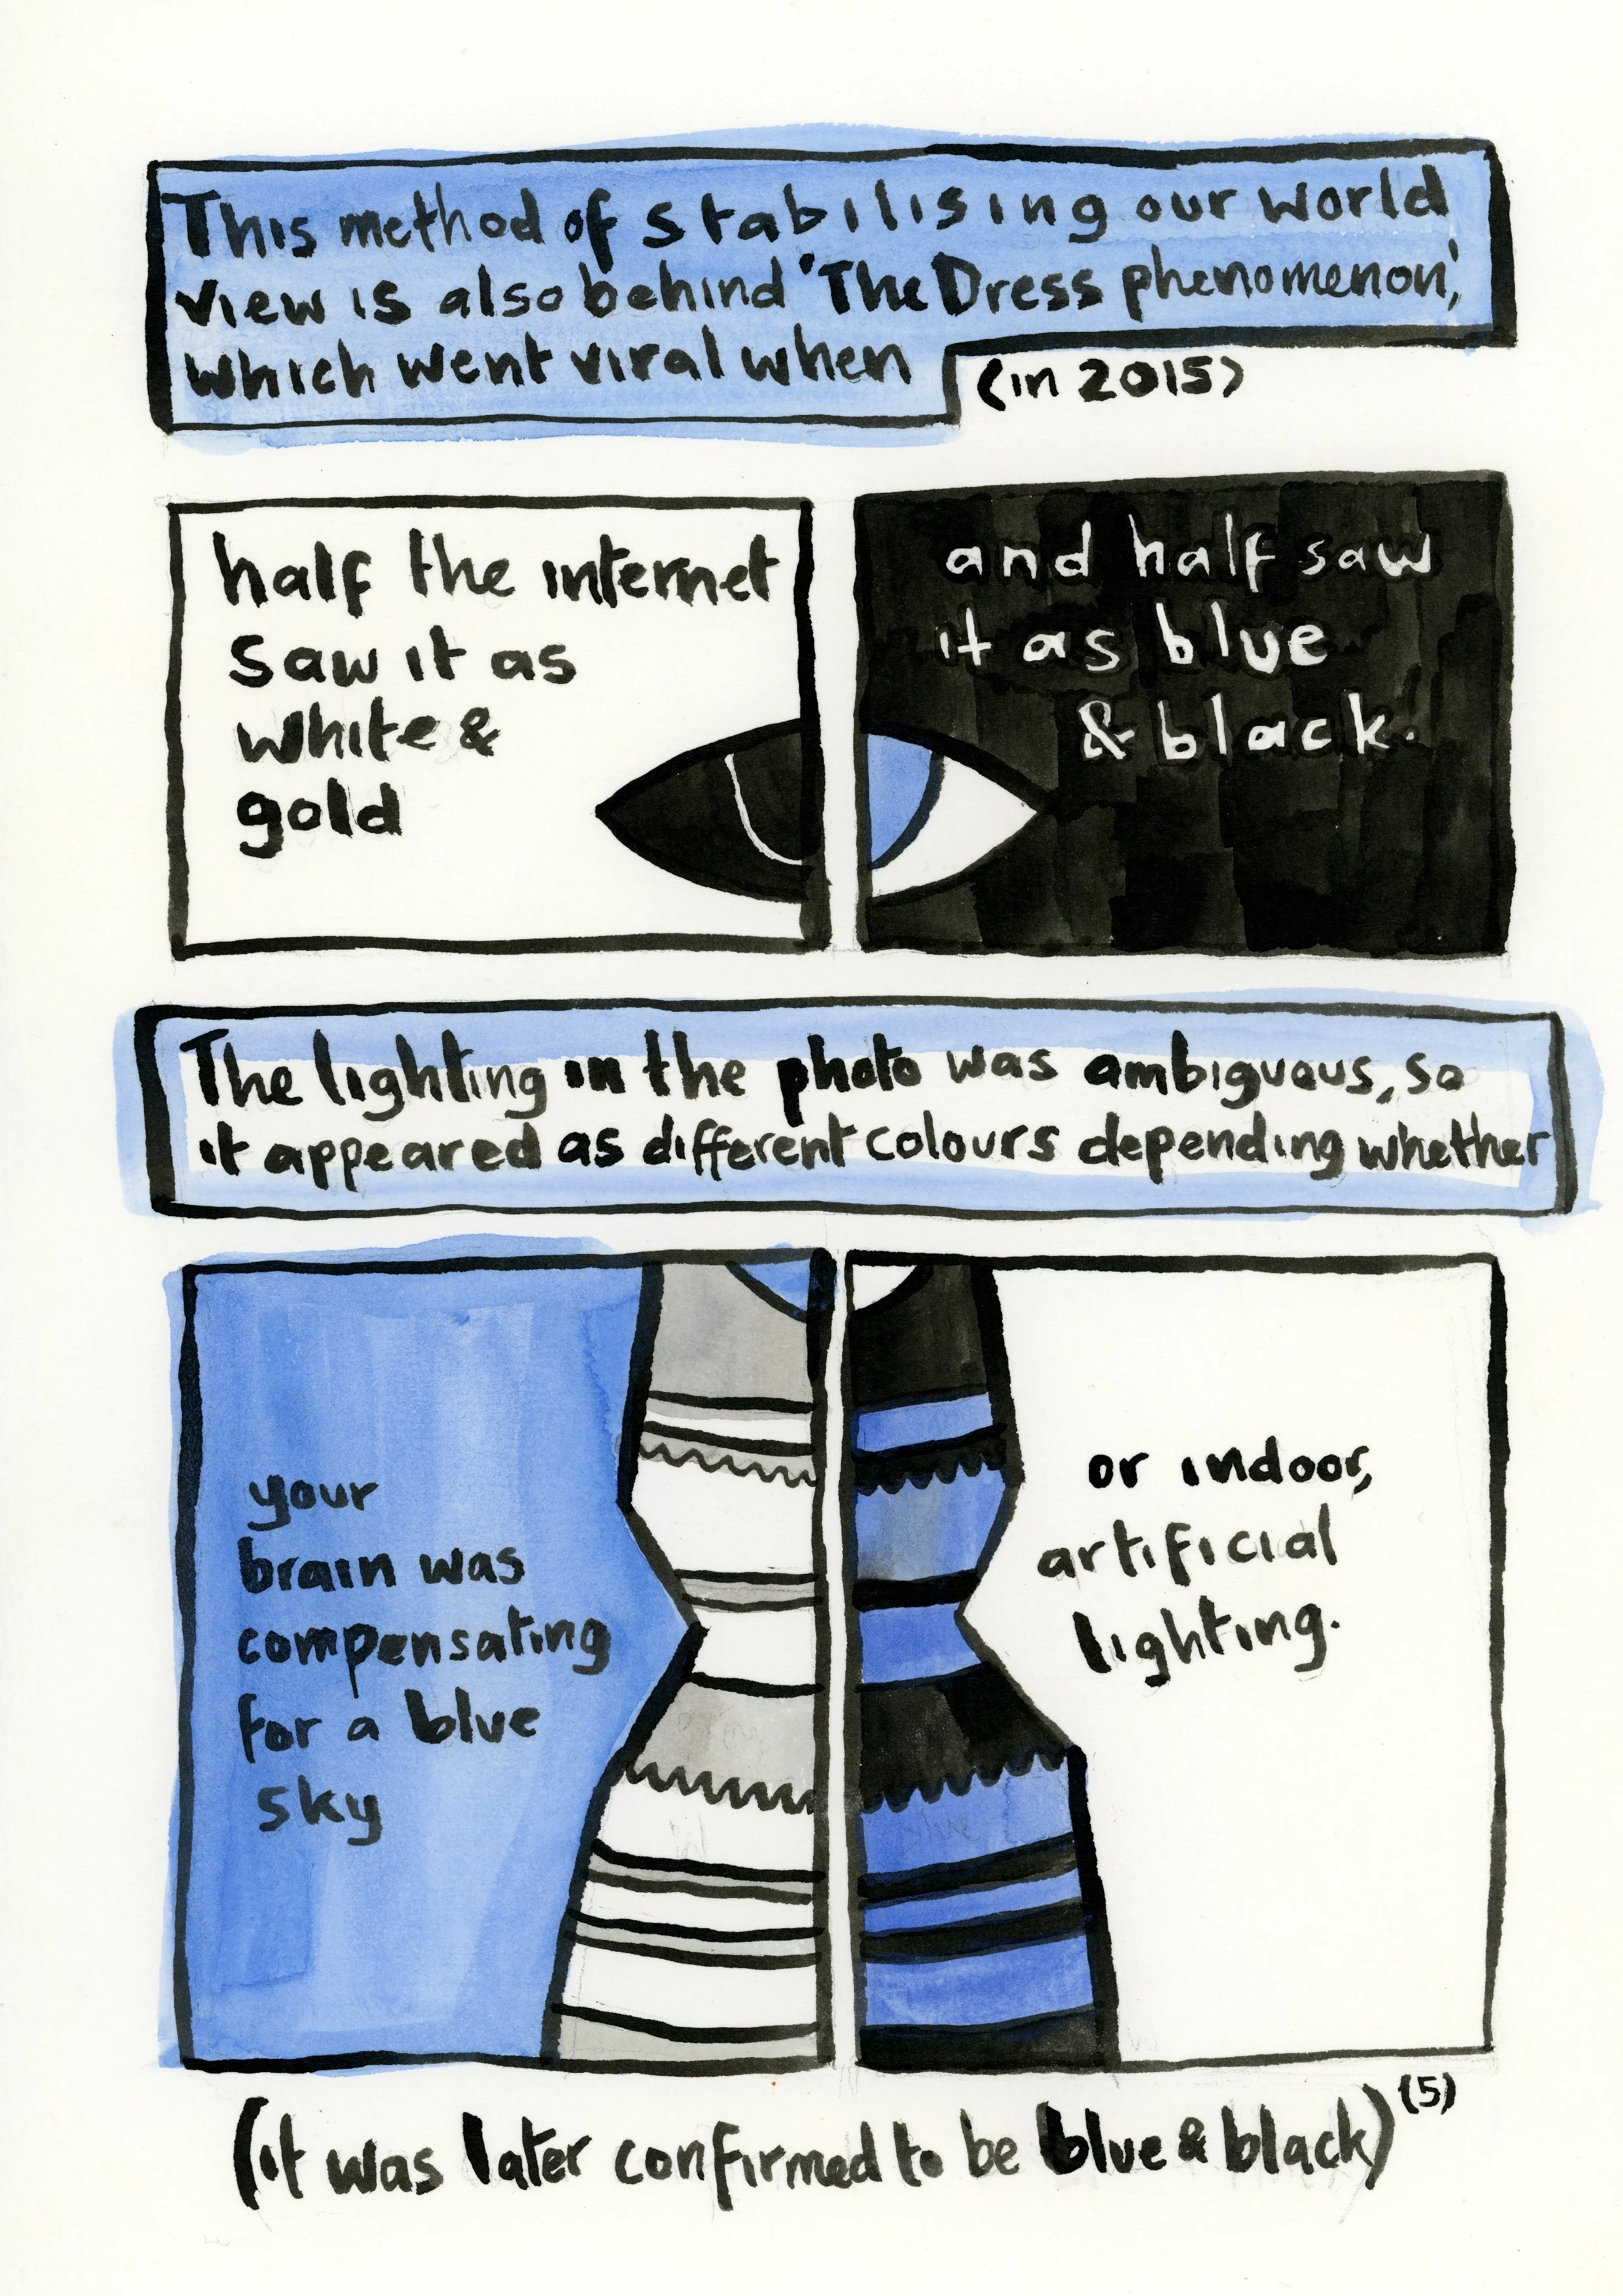 This method of stabilising our world
view is also behind 'The Dress phenomenon',
which went viral when
(in 2015)
half the internet
saw it as
white &
gold
and half saw
it as blue
& black.
The lighting in the photo was ambiguous, so
it appeared as different colours depending whether
your
brain was
compensating
for a blue
sky
or indoor,
artificial
lighting.
blue
(it was later confirmed to be blue & black) (5)